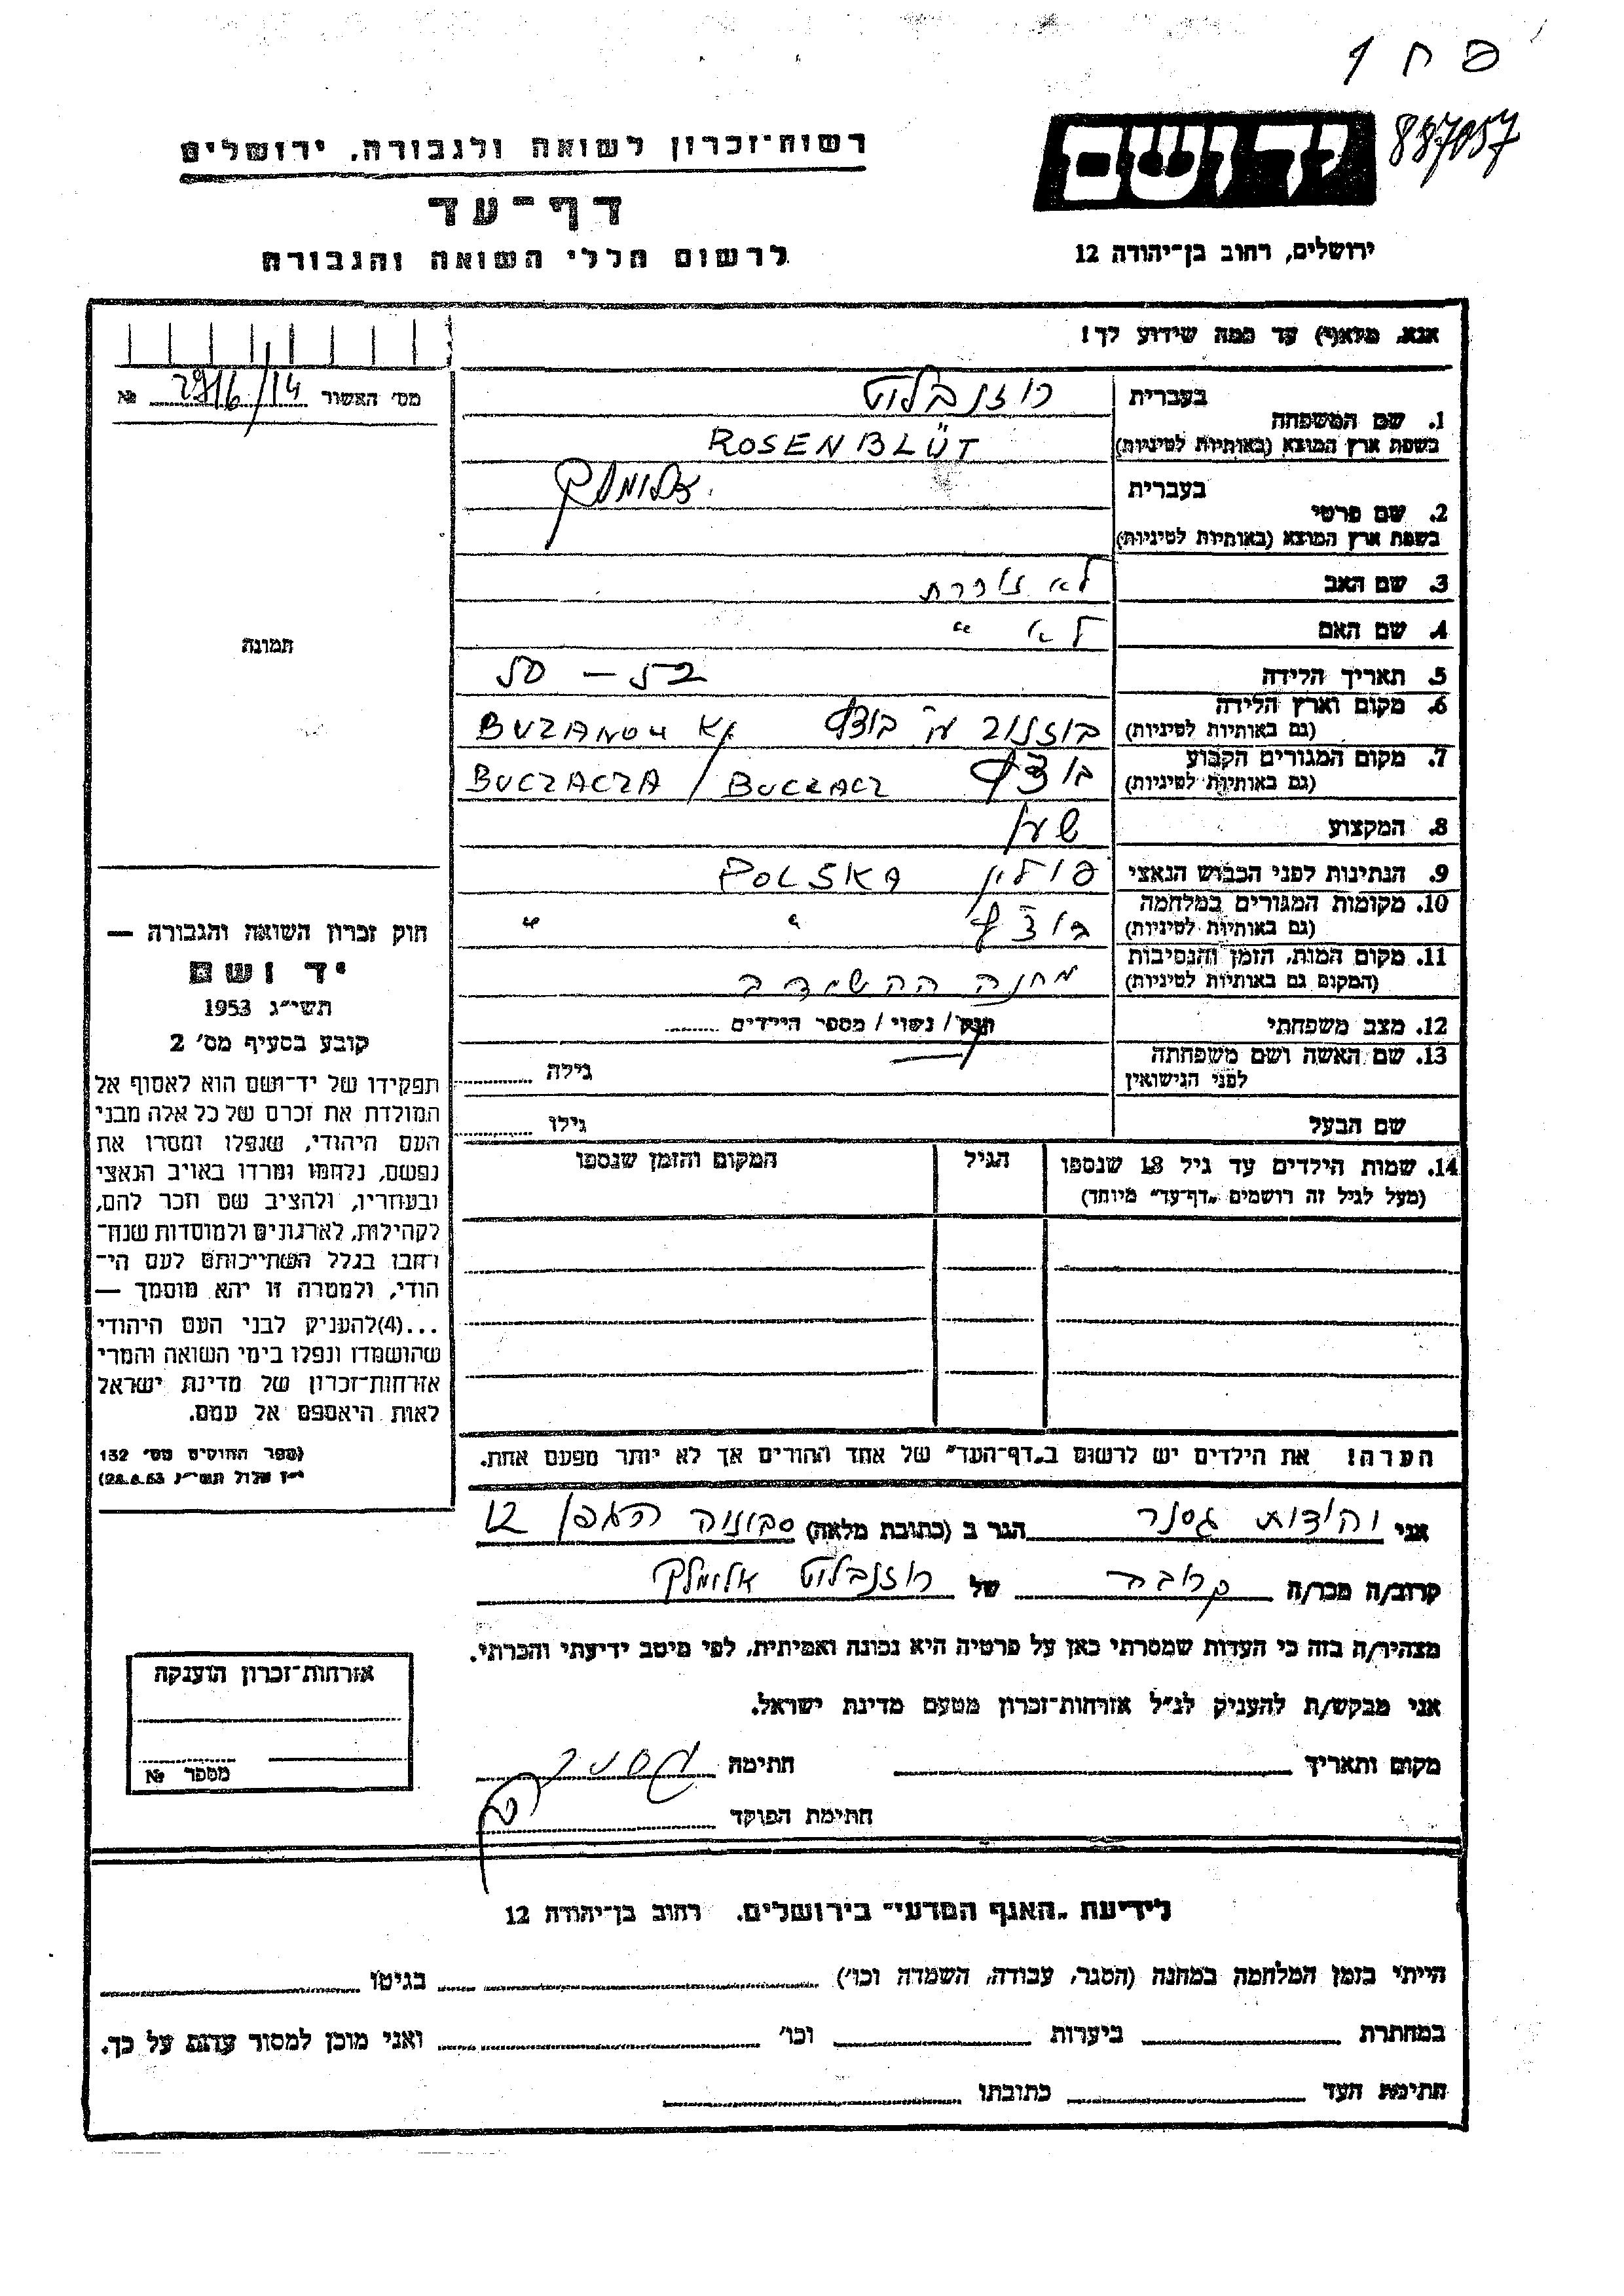 פ ח 1
887057
יד ושם
ירושלים, רחוב בן־יהודה 12
רשות־זכרון לשואה ולגבורה. ירושלים
דף־עד
לרשום חללי השואה והגבורה
אנא, מלא(י) עד כמה שידוע לך!
מס' האשור 2916/14 №
1. שם המשפחה
בעברית רוזנבליט
בשפת ארץ המוצא (באותיות לטיניות) ROSENBLÜT
2. שם פרטי
בעברית אלימלך
בשפת ארץ המוצא (באותיות לטיניות)
3. שם האב לא זוכרת
4. שם האם לא "
5. תאריך הלידה
6. מקום וארץ הלידה
(גם באותיות לטיניות)
7. מקום המגורים הקבוע
(גם באותיות לטיניות) BUCZACZA / BUCZACZ
8. המקצוע שען
9. הנתינות לפני הכבוש הנאצי פולין POLSKA
10. מקומות המגורים במלחמה " "
(גם באותיות לטיניות)
11. מקום המות, הזמן והנסיבות
(המקום גם באותיות לטיניות) מחנה ההשמדה
12. מצב משפחתי רווק / נשוי / מספר הילדים
13. שם האשה ושם משפחתה
לפני הנישואין גילה
שם הבעל גילו
14. שמות הילדים עד גיל 18 שנספו
(מעל לגיל זה רושמים „דף־עד" מיוחד)
הגיל
המקום והזמן שנספו
הערה! את הילדים יש לרשום ב„דף־העד" של אחד ההורים אך לא יותר מפעם אחת.
תמונה
חוק זכרון השואה והגבורה —
יד ושם
תשי״ג 1953
קובע בסעיף מס' 2
תפקידו של יד־ושם הוא לאסוף אל
המולדת את זכרם של כל אלה מבני
העם היהודי, שנפלו ומסרו את
נפשם, נלחמו ומרדו באויב הנאצי
ובעוזריו, ולהציב שם וזכר להם,
לקהילות, לארגונים ולמוסדות שנח־
רבו בגלל השתייכותם לעם הי־
הודי, ולמטרה זו יהא מוסמך —
...(4) להעניק לבני העם היהודי
שהושמדו ונפלו בימי השואה והמרי
אזרחות־זכרון של מדינת ישראל
לאות היאספם אל עמם.
(ספר החוקים מס' 132
י״ז אלול תשי״ג 28.8.53)
אני יהודית גסנר הגר ב (כתובת מלאה) הגפן 12
קרוב/ה מכר/ה קרובה של רוזנבליט אלימלך
מצהיר/ה בזה כי העדות שמסרתי כאן על פרטיה היא נכונה ואמיתית, לפי מיטב ידיעתי והכרתי.
אני מבקש/ת להעניק לנ״ל אזרחות־זכרון מטעם מדינת ישראל.
מקום ותאריך חתימה גסנר
חתימת הפוקד
אזרחות־זכרון הוענקה
מספר №
לידיעת „האגף המדעי" בירושלים. רחוב בן־יהודה 12
הייתי בזמן המלחמה במחנה (הסגר, עבודה, השמדה וכו') בגיטו
במחתרת ביערות וכו' ואני מוכן למסור עדות על כך.
חתימת העד כתובתו